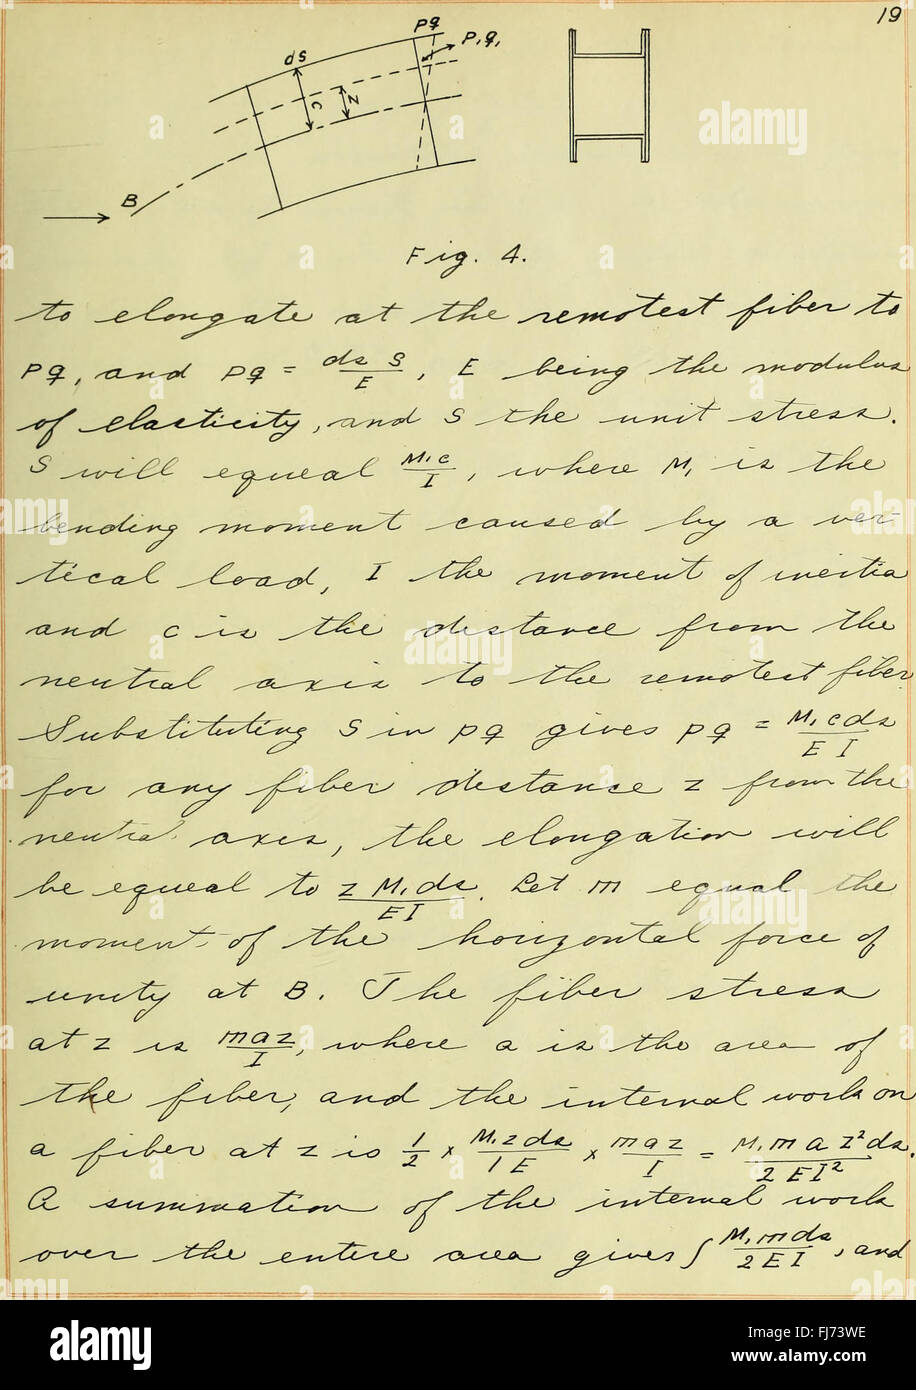 19
pq
P,q,
ds
c
z
B
Fig. 4.
to elongate at the remotest fiber to
pq, and pq = ds S / E, E being the modulus
of elasticity, and S the unit stress.
S will equeal M,c / I, where M, is the
bending moment caused by a ver-
tical load, I the moment of inertia
and c is the distance from the
neutral axis to the remotest fiber
Substituting S in pq gives pq = M,cds / EI
for any fiber distance z from the
neutral axis, the elongation will
be equeal to z M,ds / EI. Let m equal the
moment of the horizontal force of
unity at B. The fiber stress
at z is maz / I, where a is the area of
the fiber, and the internal work on
a fiber at z is 1/2 × M,zds / IE × maz / I = M,maz²ds / 2EI².
A summation of the internal work
over the entire area gives ∫ M,mds / 2EI, and
alamy
Image ID: FJ73WE
www.alamy.com